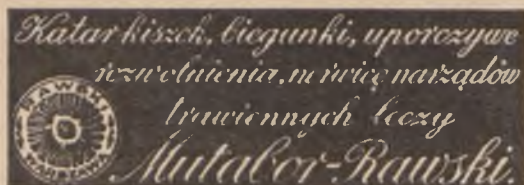 Katar kiszek, biegunki, uporczywe
rozwolnienia, nerwice narządów
trawiennych leczy
Mutabor-Rawski.
RAWSKI
WARSZAWA